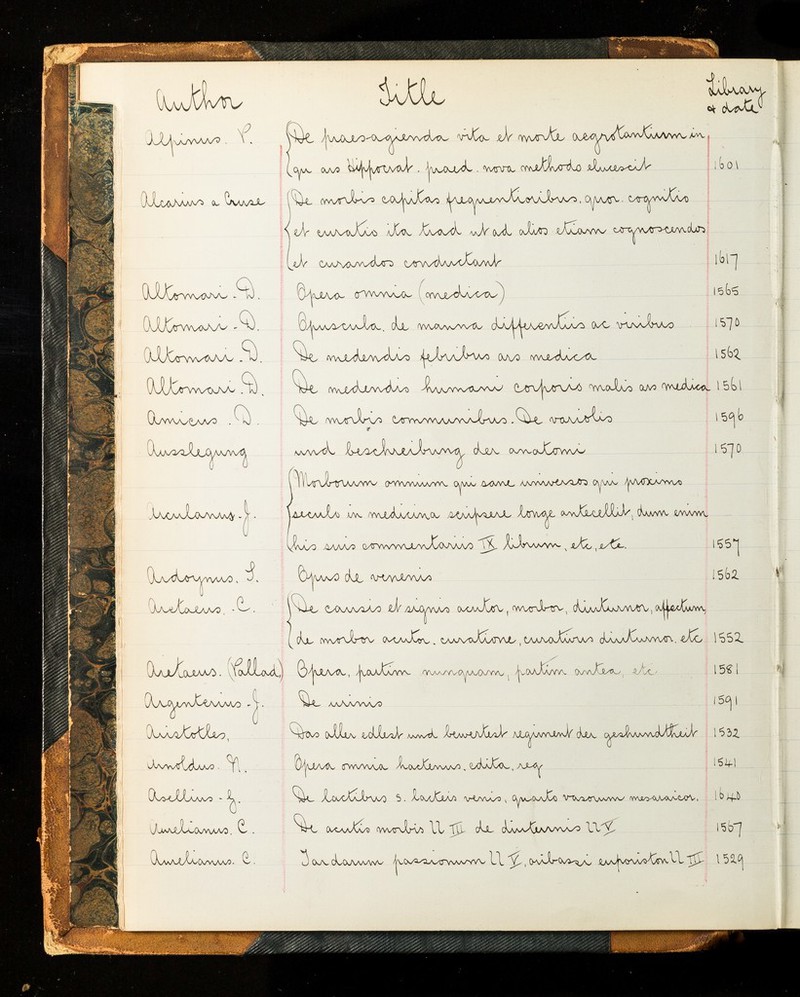 Author Title Library & date
Alpinus. P. De praesagienda vita et morte aegrotantium in,
qu aus Hippocrat. praed. nova methodo elucescit 1601
Alcarius a Cruse De morbis capitas frequentioribus, quor. cognitio
et curatio ita trad ut ad alios etiam cognoscendos
et curandos conductant 1617
Altomari. D. Opera omnia (medica) 1565
Altomari. D. Opuscula, de manna differentiis ac viribus 1570
Altomari. D. De medendis febribus ars medica 1562
Altomari. D. De medendis humani corporis malis ars medica 1561
Amicus. D. De morbis communibus. De variolis 1596
Ausslegung und beschreibung der anatomi 1570
Morborum omnium qui sane universos qui proximo
Arculanus. J. seculo in medicina scripsere longe antecellit, dum enim
his suis commentariis IX librum, etc, etc. 1557
Ardoynus. S. Opus de venenis 1562
Aretaeus. C. De causis et signis acutor, morbor, diuturnor, affectum,
de morbor acutor. curatione, curativus diuturnor. etc 1552
Aretaeus. (Pallad) Opera, partim numquam, partim antea, etc 1581
Argenterius. J. De urinis 1591
Aristotles, Das aller edlest und bewertest regiment der geshundtheit 1532
Arnoldus. N. Opera omnia hactenus. edita, reg 1541
Asellius. G. De lactibus s. lacteis venis, quarto vasorum mesaraicor, 1640
Aurelianus. C. De acutis morbis LL III de diuturnis LL V 1567
Aurelianus. C. Tardarum passionum LL V, oribassi euporiston LL III 1529